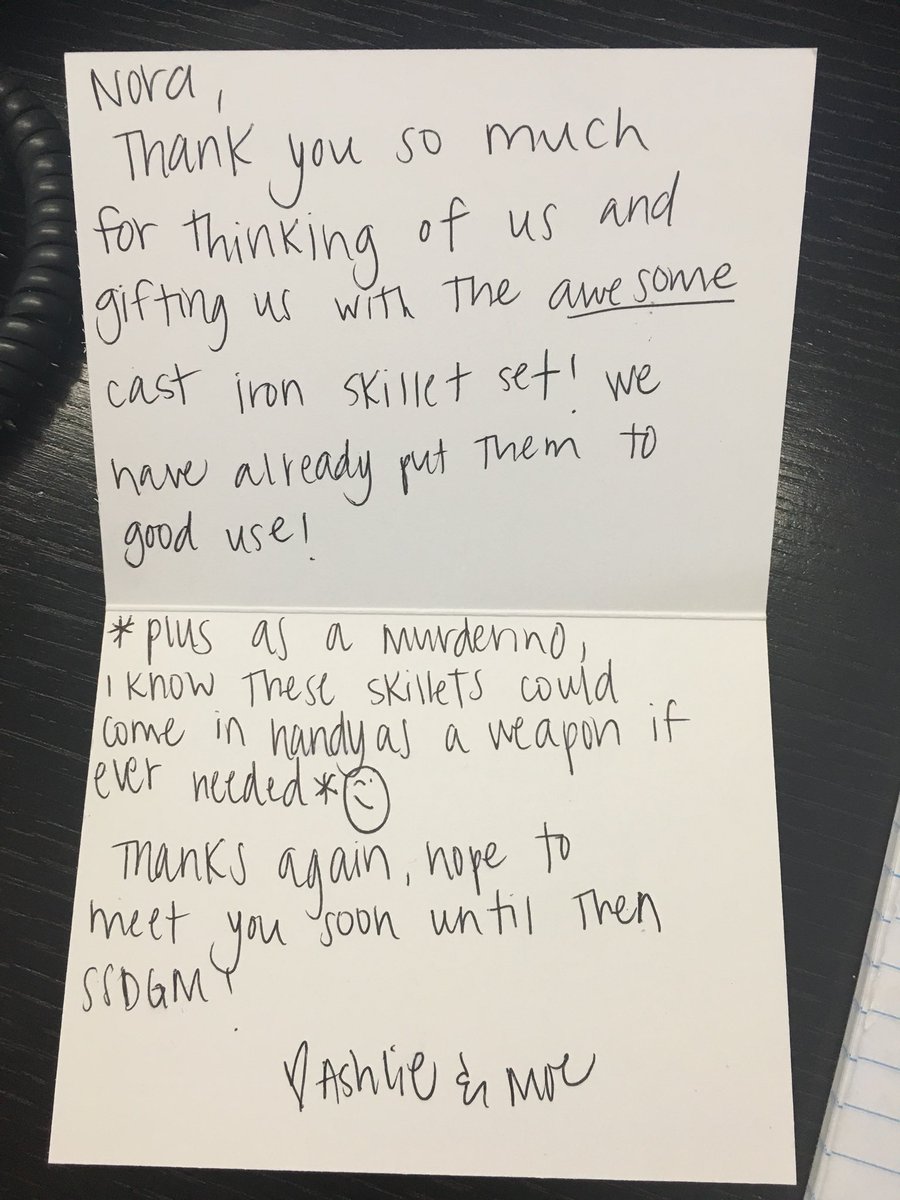 Nora,
Thank you so much
for thinking of us and
gifting us with the awesome
cast iron skillet set! we
have already put them to
good use!
*plus as a murderino,
I know these skillets could
come in handy as a weapon if
ever needed*
Thanks again, hope to
meet you soon until then
SSDGM!
Ashlie & Moe